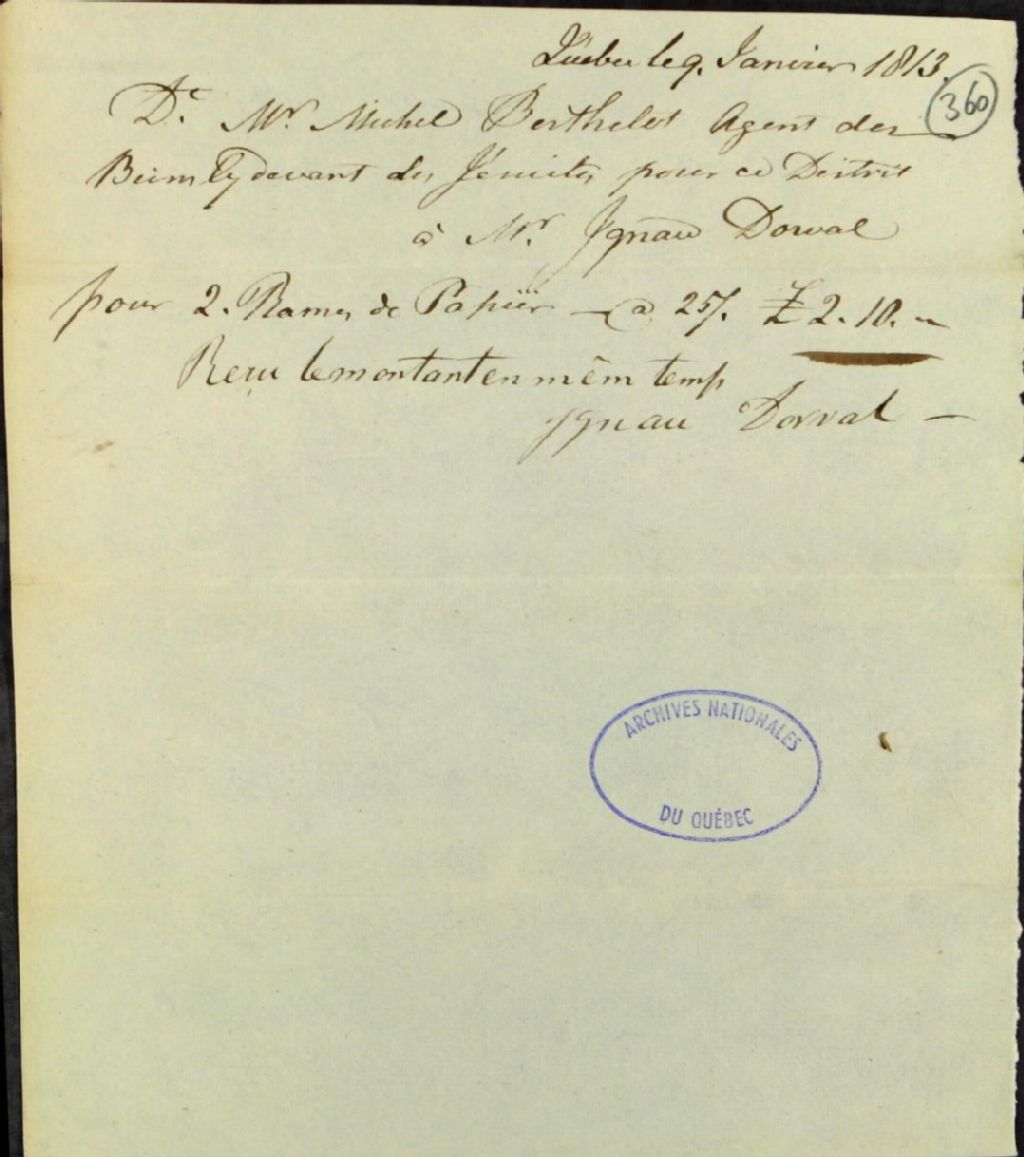 Québec le 9. Janvier 1813.
360
Dr. Mr. Michel Berthelot Agent des
Biens Cy devant des Jésuites pour ce District
à Mr. Ignace Dorval
pour 2. Rames de Papiier — @ 25/. £ 2.10. -
Recu le montant en mêm temps
Ignace Dorval —
ARCHIVES NATIONALES
DU QUÉBEC